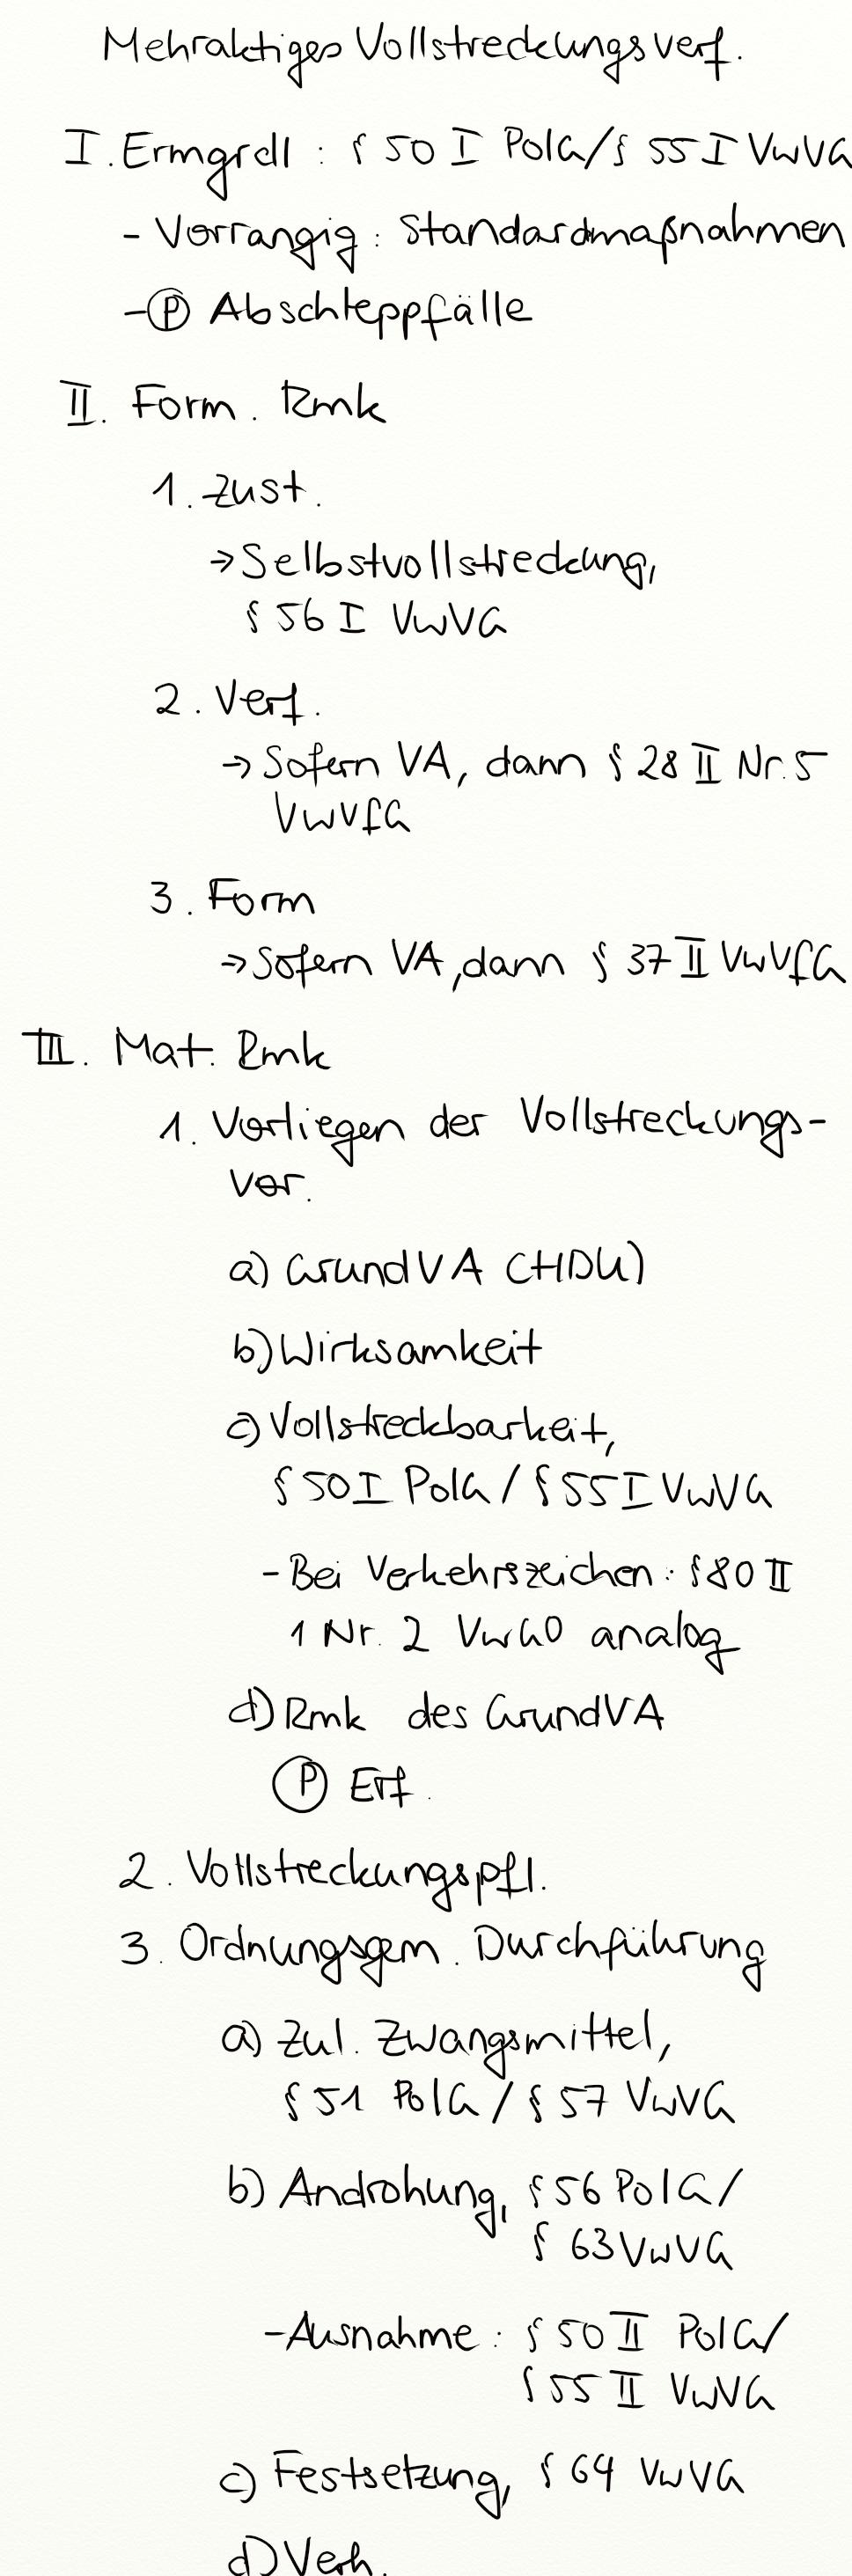 Mehraktiges Vollstreckungsverf.
I. Ermgrdl : § 50 I PolG/§ 55 I VwVG
- Vorrangig : Standardmaßnahmen
- Ⓟ Abschleppfälle
II. Form. Rmk
1. Zust.
→ Selbstvollstreckung,
§ 56 I VwVG
2. Verf.
→ Sofern VA, dann § 28 II Nr. 5
VwVfG
3. Form
→ Sofern VA, dann § 37 II VwVfG
III. Mat. Rmk
1. Vorliegen der Vollstreckungs-
vor.
a) GrundVA (HDU)
b) Wirksamkeit
c) Vollstreckbarkeit,
§ 50 I PolG / § 55 I VwVG
- Bei Verkehrszeichen : § 80 II
1 Nr. 2 VwGO analog
d) Rmk des GrundVA
Ⓟ Erf.
2. Vollstreckungspfl.
3. Ordnungsgem. Durchführung
a) Zul. Zwangsmittel,
§ 51 PolG / § 57 VwVG
b) Androhung, § 56 PolG /
§ 63 VwVG
- Ausnahme : § 50 II PolG/
§ 55 II VwVG
c) Festsetzung, § 64 VwVG
d) Verh.